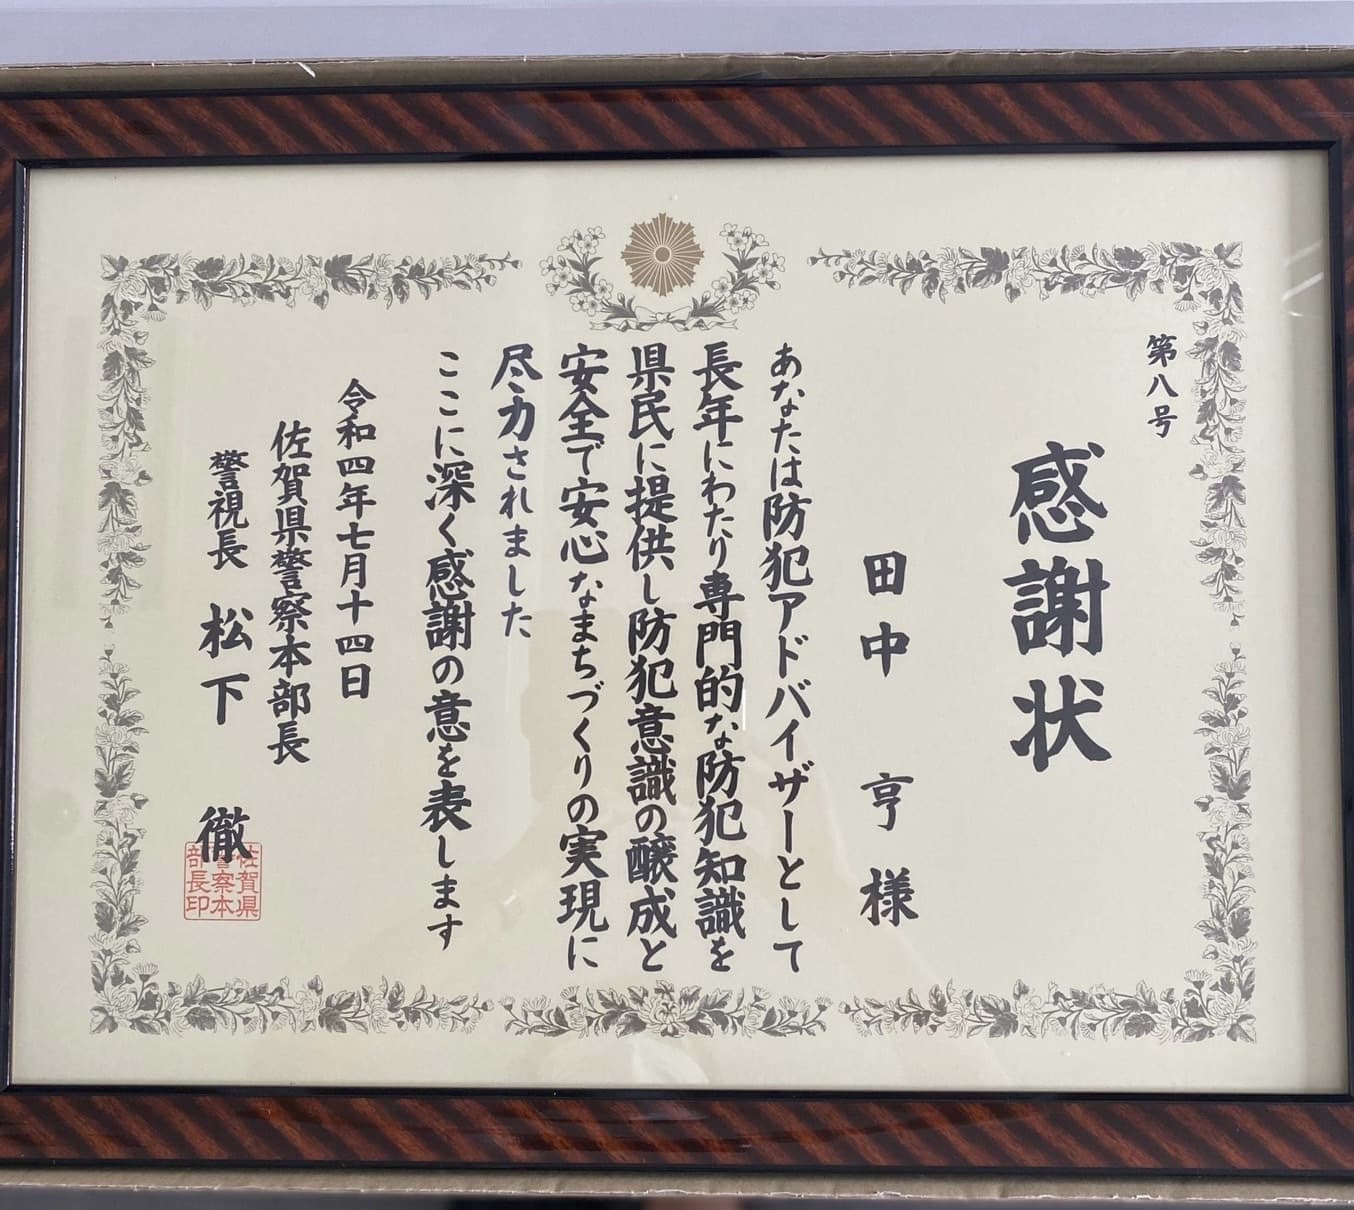 第八号
感謝状
田中亨様
あなたは防犯アドバイザーとして
長年にわたり専門的な防犯知識を
県民に提供し防犯意識の醸成と
安全で安心なまちづくりの実現に
尽力されました
ここに深く感謝の意を表します
令和四年七月十四日
佐賀県警察本部長
警視長 松下 徹
佐賀県
警察本
部長印